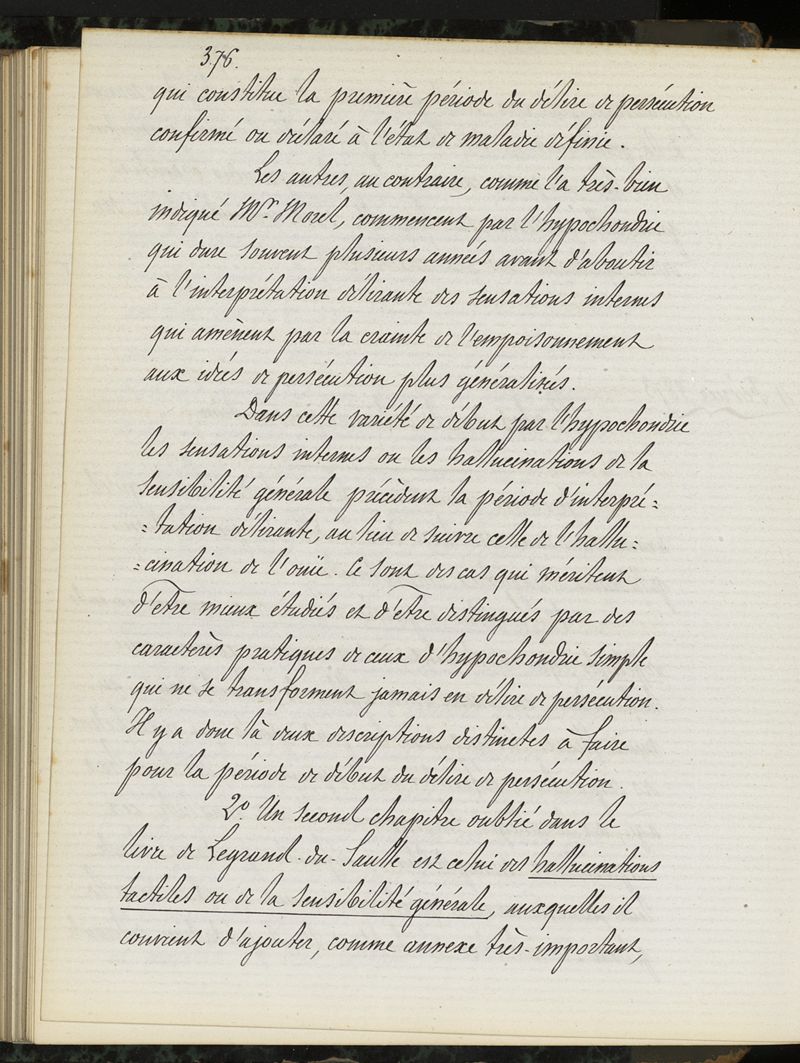 376.
qui constitue la première période du délire de persécution
confirmé ou déclaré à l'état de maladie définie.
Les autres, au contraire, comme l'a très-bien
indiqué Mr. Morel, commencent par l'hypochondrie
qui dure souvent plusieurs années avant d'aboutir
à l'interprétation délirante des sensations internes
qui amènent par la crainte de l'empoisonnement
aux idées de persécution plus généralisées.
Dans cette variété de début par l'hypochondrie
les sensations internes ou les hallucinations de la
sensibilité générale précèdent la période d'interpré=
=tation délirante, au lieu de suivre celle de l'hallu=
=cination de l'ouïe. Ce sont des cas qui méritent
d'être mieux étudiés et d'être distingués par des
caractères pratiques de ceux d'hypochondrie simple
qui ne se transforment jamais en délire de persécution.
Il y a donc là deux descriptions distinctes à faire
pour la période de début du délire de persécution.
2o. Un second chapitre oublié dans le
livre de Legrand-du-Saulle est celui des hallucinations
tactiles ou de la sensibilité générale, auxquelles il
convient d'ajouter, comme annexe très-important,